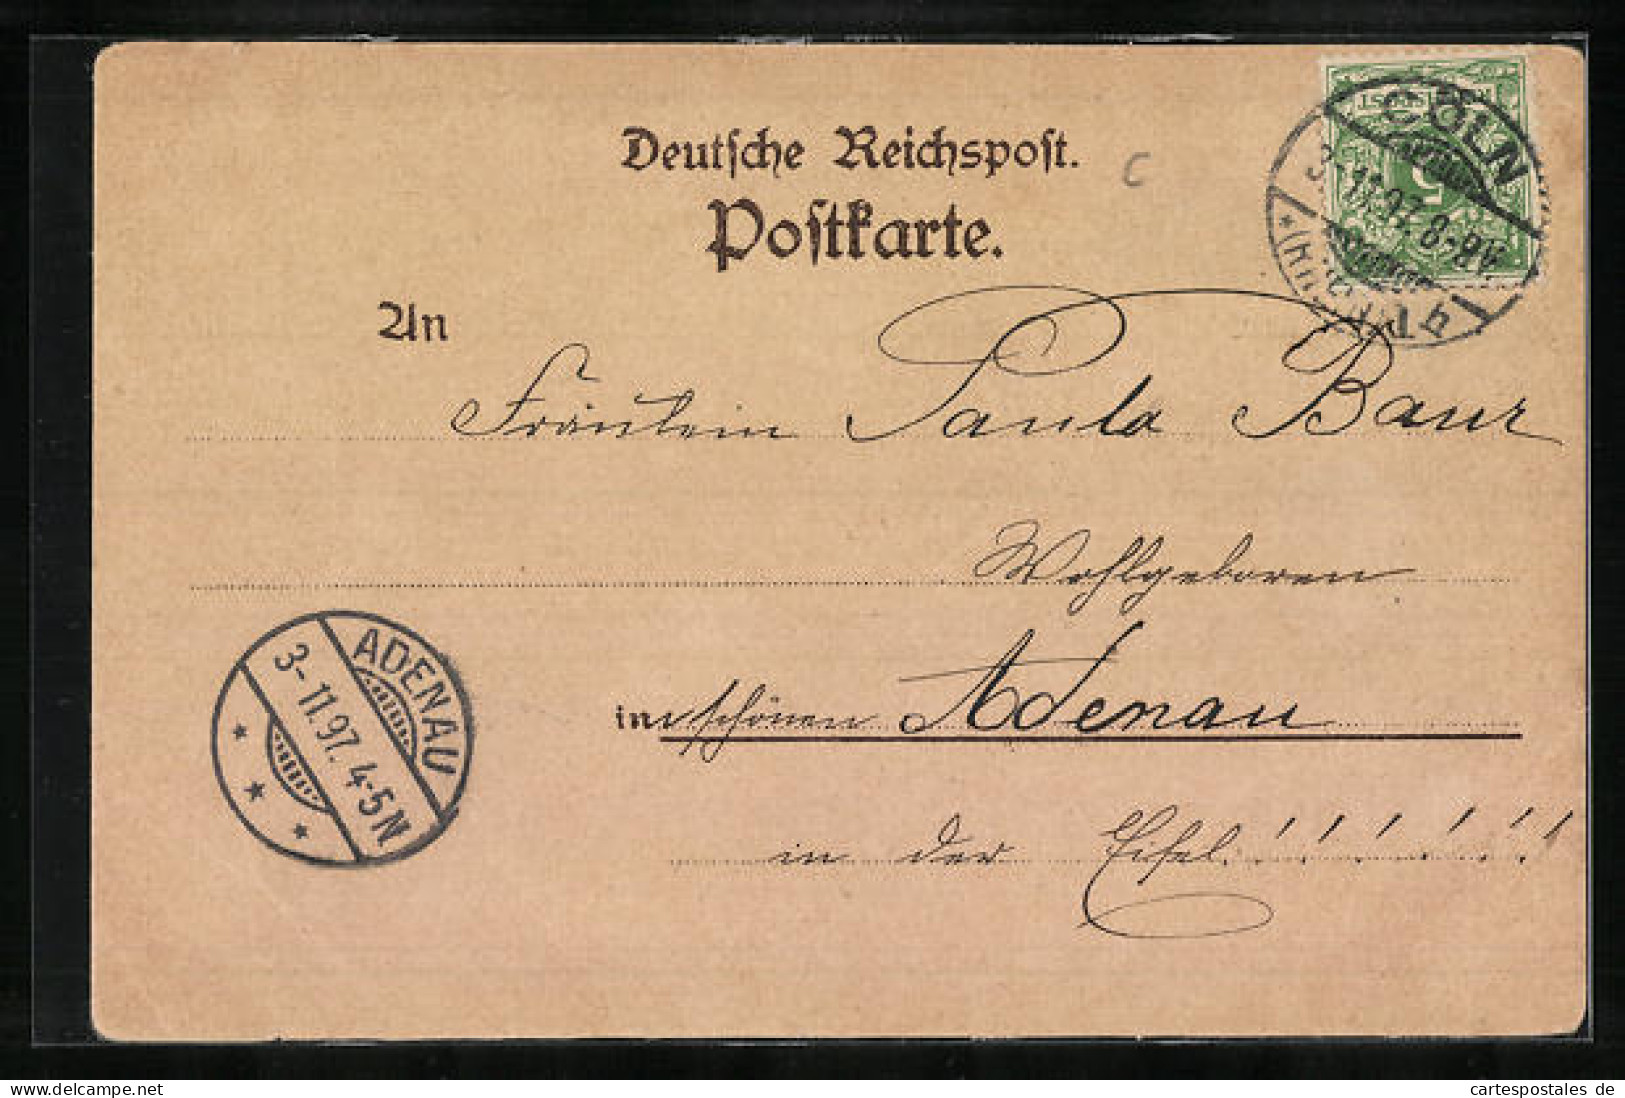 Deutsche Reichspost.
Postkarte.
C
CÖLN
3 11.97. 8-9V.
(Rhein) 1 h
An
Fräulein Paula Baur
Wohlgeboren
in schönen Adenau
in der Eifel!!!!!!
ADENAU
3-11.97. 4-5N
cartespostales de